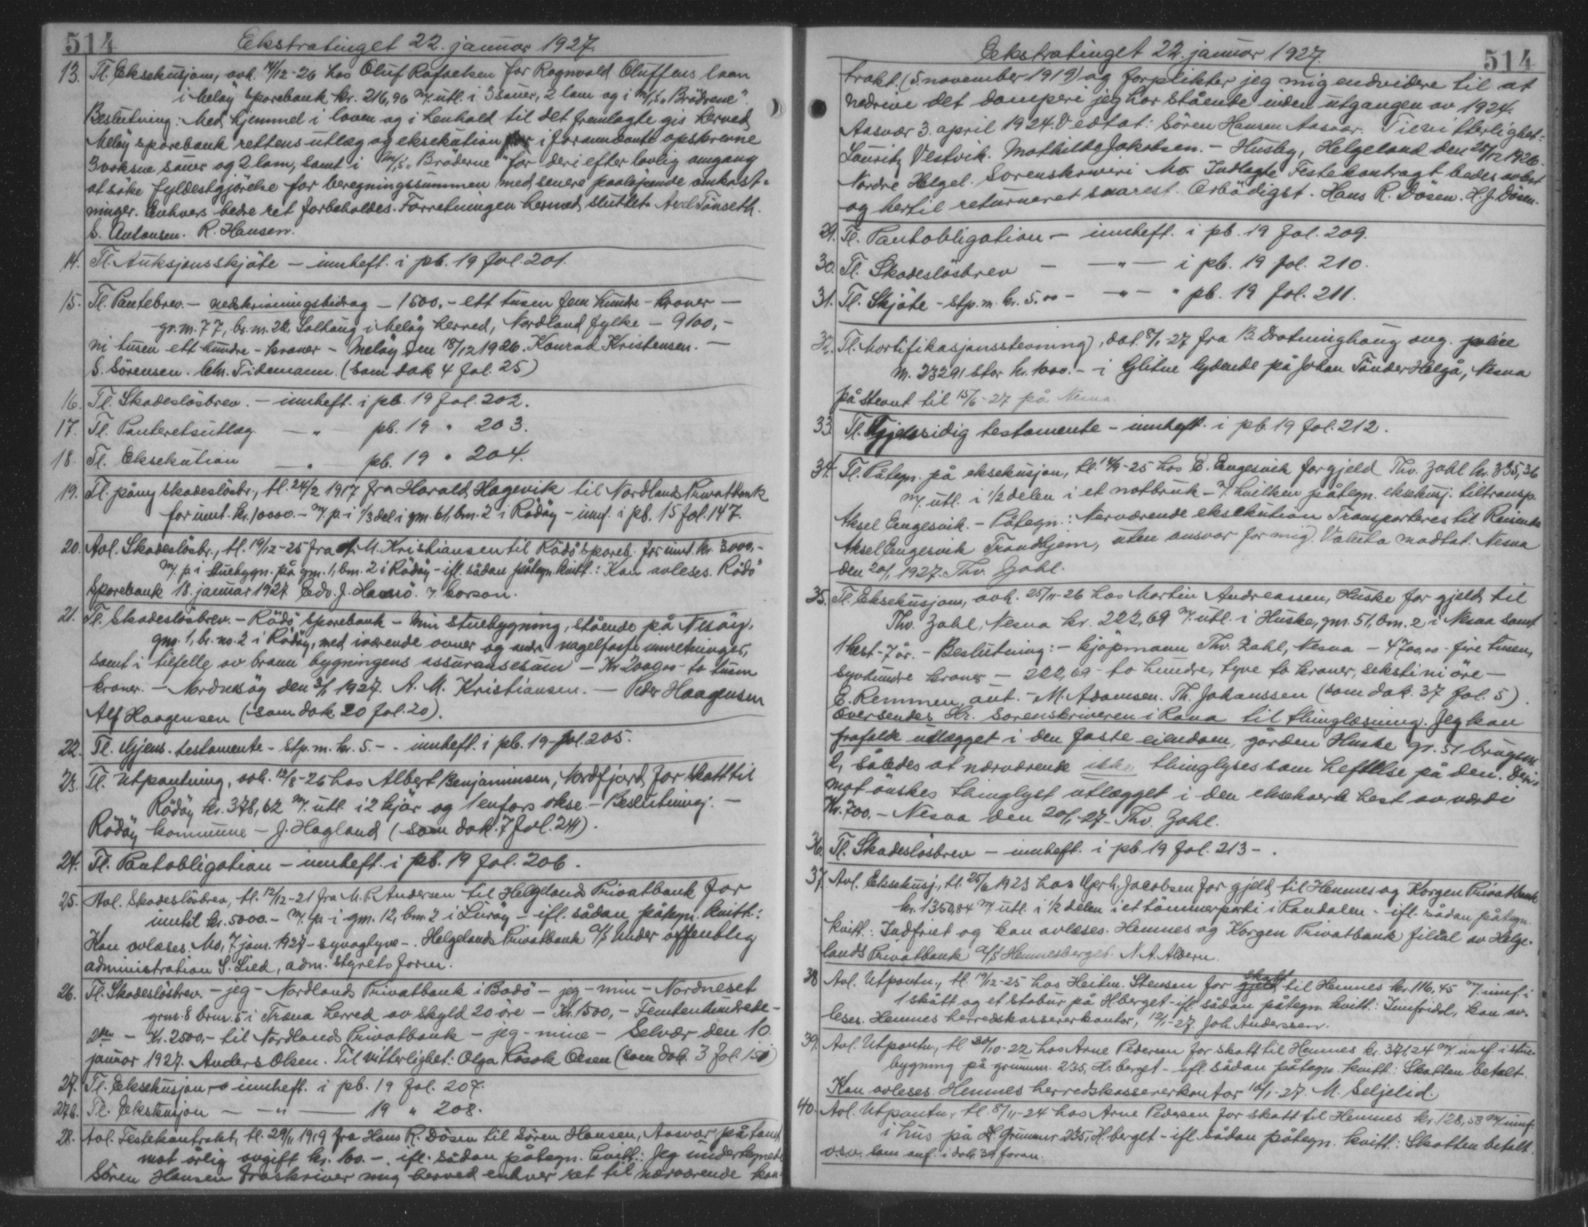 514
Ekstratinget 22. januar 1927.
13. Tl. Eksekusjon, avh. 14/12-26 hos Oluf Rafaelsen for Ragnvald Oluffens laan
i Meløy sparebank kr. 216,96 m/ utl. i 3 sauer, 2 lam og i m/k "Brödrene"
Beslutning: Med hjemmel i loven og i henhold til det fremlagte gis herved
Meløy sparebank rettens utlæg og eksekution i foranævnte opskrevne
3 voksne sauer og 2 lam, samt i m/k "Bröderne" for deri efter lovlig omgang
at søke fyldestgjörelse for beregningssummen med senere paaløpende omkost-
ninger. Enhvers bedre ret forbeholdes. Forretningen hermed sluttet. Axel Tönseth.
E. Antonsen. R. Hansen.
14. Tl. Auksjonsskjöte - innheft. i pb. 19 fol. 201.
15. Tl. Pantebrev - nedskrivningsbidrag - 1500,- ett tusen fem hundre - kroner -
gr.nr. 77, br.nr. 28 Solhaug i Meløy herred, Nordland fylke - 9100,-
ni tusen ett hundre - kroner - Meløy den 18/12 1926. Konrad Kristensen. -
S. Sörensen. Chr. Tidemann. (som dok 4 fol. 25)
16. Tl. Skadeslösbrev. - innheft. i pb. 19 fol. 202.
17. Tl. Panteretsutlæg - " - pb. 19 " 203.
18. Tl. Eksekution - " - pb. 19 " 204.
19. Tl. påny skadeslösbr., tl. 24/2 1917 fra Harald Hagevik til Nordlands Privatbank
for inntil kr. 10000.- m/ p. i 1/3 del i gnr. 61, bnr. 2 i Rödöy - innf. i pb. 15 fol. 147
20. Avl. Skadeslösbr., tl. 19/12-25 fra A. M. Kristiansen til Rödö spareb. for inntil kr. 3000,-
m/ p. i stuebygn. på gnr. 1, bnr. 2 i Rödöy - ifl. sådan påtegn. kvitt: Kan avleses. Rödö
Sparebank 18. januar 1927 Edv. J. Hansö.
21. Tl. Skadeslösbrev. - Rödö Sparebank - min stuebygning, stående på Nesöy,
gnr. 1, br. no. 2 i Rödöy, med iværende ovner og andre nagelfaste innretninger,
samt i tilfelle av brann bygningens assuransesum - Kr. 2000,00 - to tusen
kroner. - Nordnesöy den 3/1 1927. A. M. Kristiansen. - Peder Haagensen
Alf Haagensen (- som dok 20 fol. 20).
22. Tl. Gjens. testamente - Stp. m. kr. 5. - innheft. i pb. 19 fol. 205.
23. Tl. Utpantning, avh. 12/8-26 hos Albert Benjaminsen, Nordfjord, for skatt til
Rödöy kr. 378,62 m/ utl. i 2 kjör og 1 enfors okse. - Beslutning: -
Rödöy kommune - J. Hagland (som dok. 7 fol. 241).
24. Tl. Pantobligation - innheft. i pb. 19 fol. 206.
25. Avl. Skadeslösbrev, tl. 12/12-21 fra M. P. Andersen til Helgelands Privatbank for
inntil kr. 5000.- m/ p. i gnr. 12, bnr. 2 i Luröy - ifl. sådan påtegn. kvitt:
Kan avleses. Mo, 7 janr. 1927 - syvogtyve -. Helgelands Privatbank A/S under offentlig
administration S. Lied, adm. styrets form.
26. Tl. Skadeslösbrev. - jeg - Nordlands Privatbank i Bodö - jeg - min - Nordneset
grnr. 8 brnr. 5 i Træna herred av skyld 20 öre - Kr. 1500,- Femtenhundrede -
Kr. 2500,- til Nordlands Privatbank - jeg - mine - Selvær den 10
januar 1927. Anders Olsen. Til vitterlighet: Olga Olsen (som dok. 3 fol. 151)
27. Tl. Eksekusjon - innheft. i pb. 19 fol. 207.
27b. Tl. Eksekusjon - " - 19 " 208.
28. Avl. Festekontrakt, tl. 29/11 1919 fra Hans R. Dösen til Sören Hansen, Aasvær, på land
mot årlig avgift kr. 100. - ifl. sådan påtegn. kvitt: Jeg undertegnede
Sören Hansen fraskriver mig herved enhver ret til nærværende kon-
514
Ekstratinget 22. januar 1927.
trakt. (5 november 1919) og forplikter jeg mig endvidere til at
nedrive det damperi jeg har stående inden utgangen av 1924.
Aasvær 3. april 1924. Vedtat: Sören Hansen Aasvær. Til vitterlighet:
Lauritz Vestvik. Mathilde Jakobsen. - Husby, Helgeland den 28/12 1926.
Nordre Helgel. Sorenskriveri Mo. Indlagte Festekontragt bedes avlæst
og hertil returneret snarest. Ærbödigst. Hans R. Dösen. H. J. Dösen.
29. Tl. Pantobligation - innheft. i pb. 19 fol. 209.
30. Tl. Skadeslösbrev - " - i pb. 19 fol. 210.
31. Tl. Skjöte - Stp. m. kr. 5.00 - - " - " pb. 19 fol. 211.
32. Tl. Mortifikasjonsstevning, dat. 8/1-27 fra B. Drotninghaug ang. police
nr. 23291 stor kr. 1000.- i Glitne lydende på Johan Tönder Helgå, Nesna
på stevnt til 15/6-27 på Nesna.
33. Tl. Gjensidig testamente - innheft. i pb. 19 fol. 212.
34. Tl. Påtegn. på eksekusjon, tl. 14/8-25 hos E. Engesvik for gjeld Thv. Zahl kr. 335,36
m/ utl. i 1/2 delen i et notbruk - v/ hvilken påtegn. eksekusj. tiltransp.
Aksel Engesvik. - Påtegn: Nærværende eksekution Transporteres til Reisende
Aksel Engesvik Trondhjem, uten ansvar for mig. Valuta modtat. Nesna
den 20/1 1927. Thv. Zahl.
35. Tl. Eksekusjon, avh. 25/11-26 hos Martin Andreassen, Huske for gjeld til
Thv. Zahl, Nesna kr. 222,69 m/ utl. i Huske, gnr. 51, bnr. 2 i Nesna samt
1 hest - 7 år. - Beslutning: - kjöpmann Thv. Zahl, Nesna - 4700,00 - fire tusen,
syvhundre kroner - 222,69 - to hundre, tyve to kroner, sekstini öre -
E. Remmen, aut. - M. Adamsen. Th. Johanssen (som dok. 37 fol. 5).
Oversendes Hr. Sorenskriveren i Rana til thinglæsning. Jeg kan
frafalle utlægget i den faste eiendom, gården Huske gr. 51 bruksnr
2, således at nærværende ikke thinglyses som heftelse på den. Der-
mot önskes thinglyst utlægget i den eksekverte hest av værdi
Kr. 700.- Nesna den 20/1-27. Thv. Zahl.
36. Tl. Skadeslösbrev - innheft. i pb 19 fol. 213 -.
37. Avl. Eksekusj., tl. 25/6 1923 hos Jacobsen for gjeld til Hemnes og Korgen Privatbank
kr. 1350,84 m/ utl. i 1/2 delen i et tömmerparti i Randalen. - ifl. sådan påtegn.
kvitt: Indfriet og kan avleses. Hemnes og Korgen Privatbank filial av Helge-
lands Privatbank A/S Hemnesberget. N. A. Alvern.
38. Avl. Utpantn., tl. 19/12-25 hos Heitm. Stensen for skatt til Hemnes kr. 116,45 m/ innf. i
1 skått og et stabur på H.berget - ifl. sådan påtegn. kvitt: Innfridd, kan av-
leses. Hemnes herredskassererkontor, 12/1-27 Joh. Anderssen.
39. Avl. Utpantn., tl. 30/10-22 hos Arne Pedersen for skatt til Hemnes kr. 371,24 m/ innf. i stue-
bygning på grunnnr. 235, H.berget - ifl. sådan påtegn. kvitt: Skatten betalt.
Kan avleses. Hemnes herredskassererkontor 12/1-27 M. Seljelid.
40. Avl. Utpantn., tl. 8/11-24 hos Arne Pedersen for skatt til Hemnes kr. 128,58 m/ innf.
i hus på grunnnr 235, H.berget - ifl. sådan påtegn. kvitt: Skatten betalt
o.s.v. som anf. i dok 39 foran.